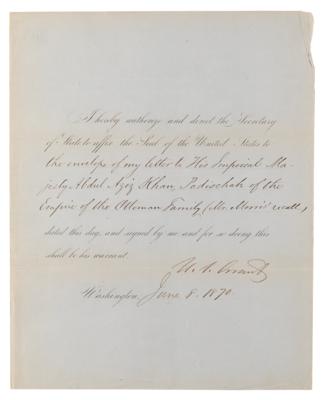 I hereby authorize and direct the Secretary
of State to affix the Seal of the United States to
the envelope of my letter to His Imperial Ma-
jesty Abdul Aziz Khan, Padischah of the
Empire of the Ottoman Family (Mr. Morris' recall,)
dated this day, and signed by me, and for so doing this
shall be his warrant.
U. S. Grant
Washington, June 8. 1870.